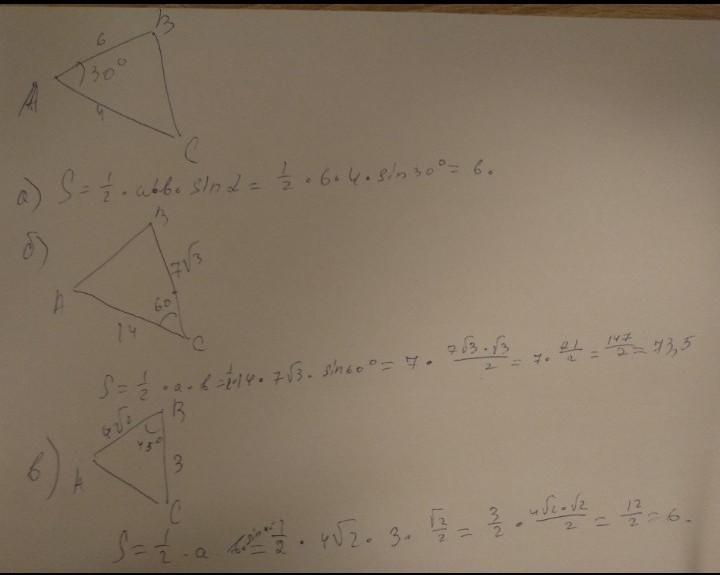 B
6
30°
A
4
C
а) S = 1/2 · a · b · sin α = 1/2 · 6 · 4 · sin 30° = 6.
б)
B
7√3
A
60
14
C
S = 1/2 · a · b = 1/2 · 14 · 7√3 · sin 60° = 7 · 7√3·√3/2 = 7 · 21/2 = 147/2 = 73,5
B
4√2
45°
в)
3
A
C
S = 1/2 · a = 1/2 · 4√2 · 3 · √2/2 = 3/2 · 4√2·√2/2 = 12/2 = 6.